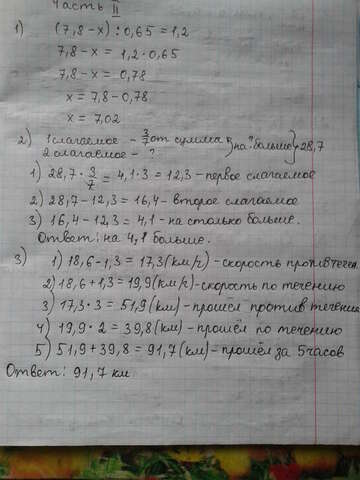 Часть II
1) (7,8-x):0,65=1,2
7,8-x=1,2·0,65
7,8-x=0,78
x=7,8-0,78
x=7,02
2) 1 слагаемое - 3/7 от суммы } на ? больше } 28,7
2 слагаемое - ?
1) 28,7·3/7=4,1·3=12,3-первое слагаемое
2) 28,7-12,3=16,4-второе слагаемое
3) 16,4-12,3=4,1-на столько больше.
Ответ: на 4,1 больше.
3) 1) 18,6-1,3=17,3(км/ч)-скорость против течен.
2) 18,6+1,3=19,9(км/ч)-скорость по течению
3) 17,3·3=51,9(км)-прошёл против течения
4) 19,9·2=39,8(км)-прошёл по течению
5) 51,9+39,8=91,7(км)-прошёл за 5 часов
Ответ: 91,7 км.